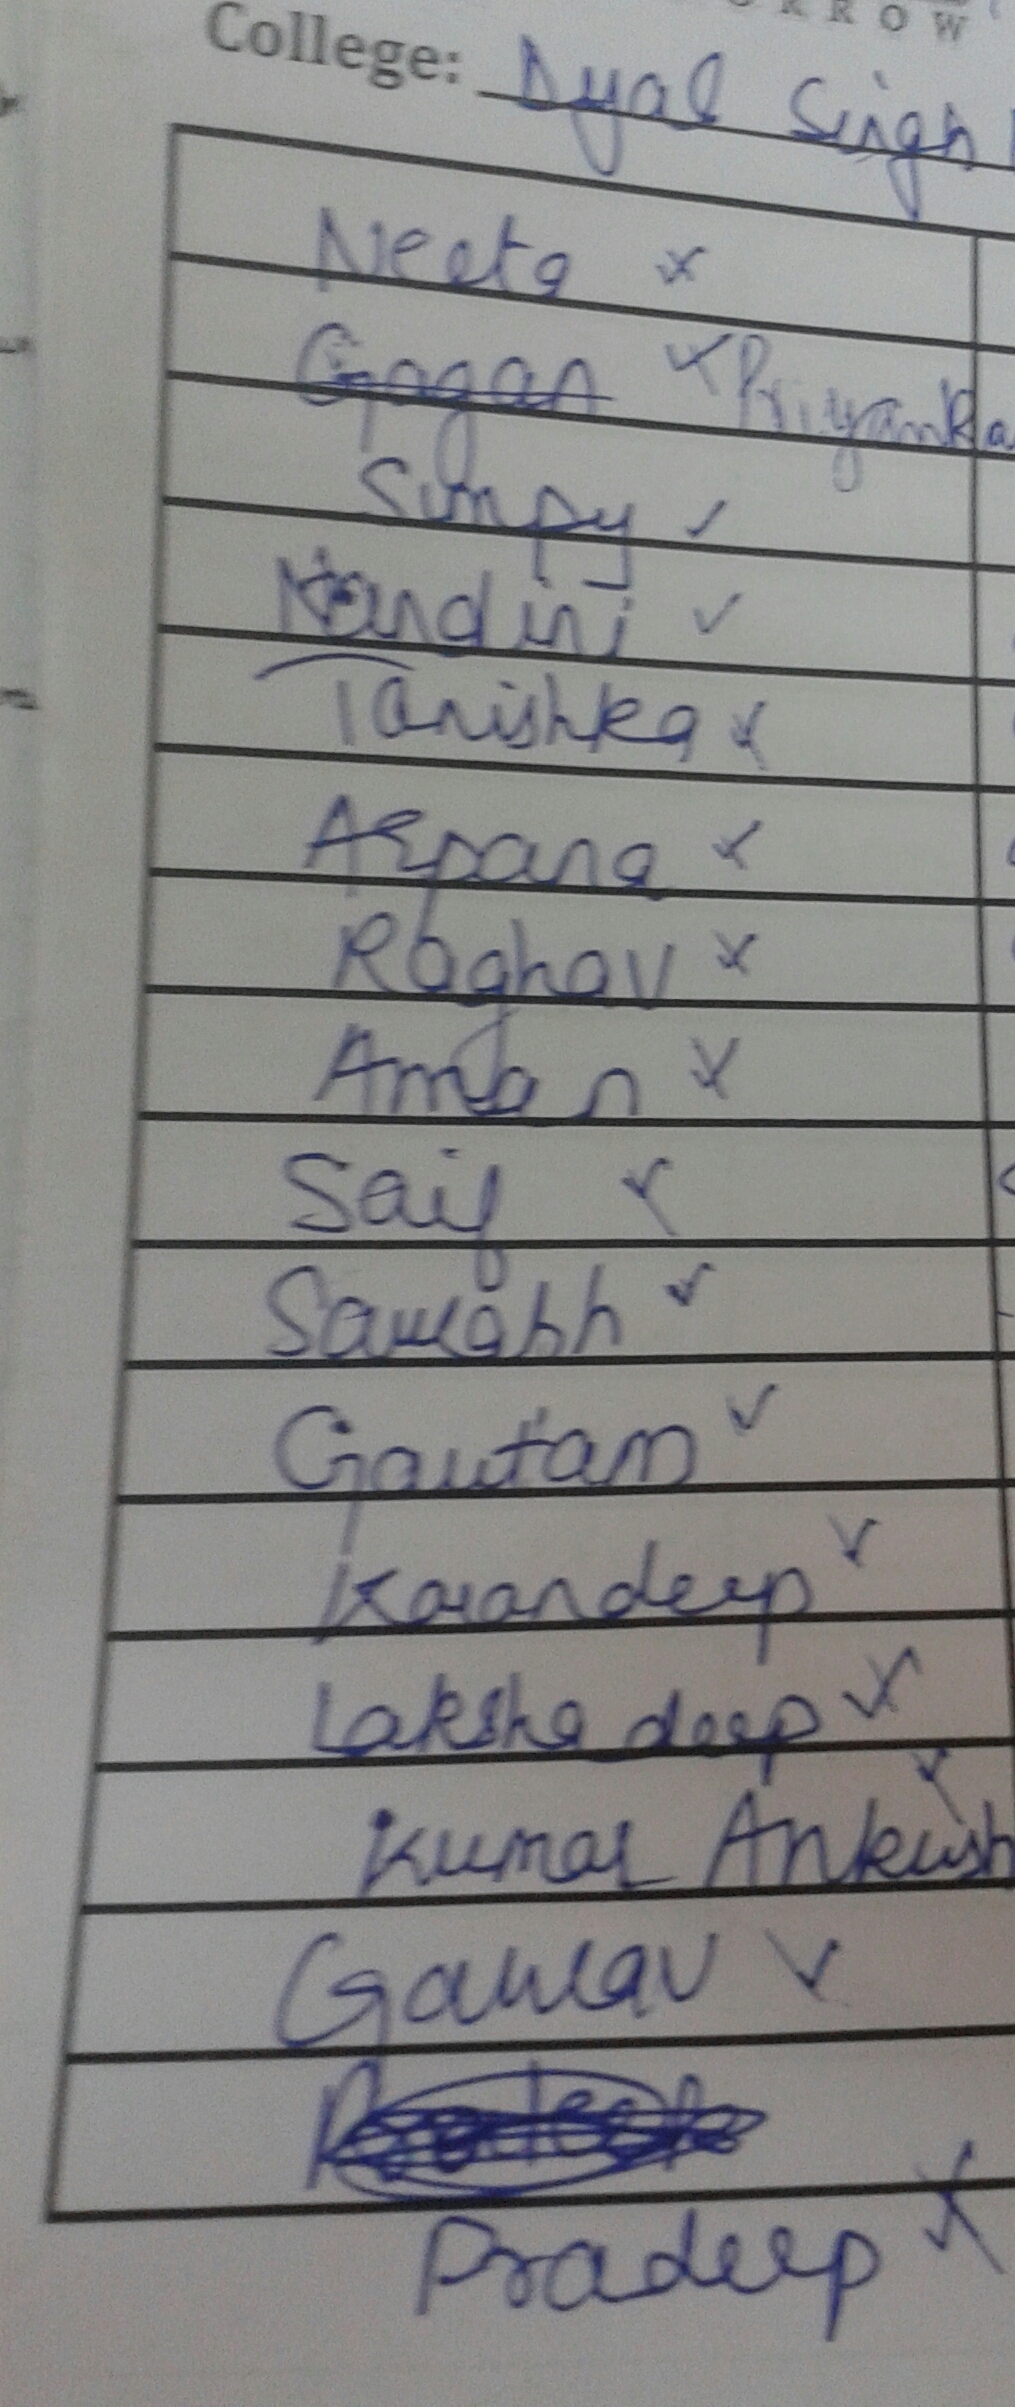 RROW
College: Dyal Singh
Neeta x
Gagan x Priyanka
Simpy ✓
Nandini ✓
Tanishka x
Arpana x
Raghav x
Aman x
Saif ✓
Saurabh ✓
Gautam ✓
Karandeep ✓
Lakshadeep x
Kumar Ankush ✓
Gaurav ✓
Pradeep x